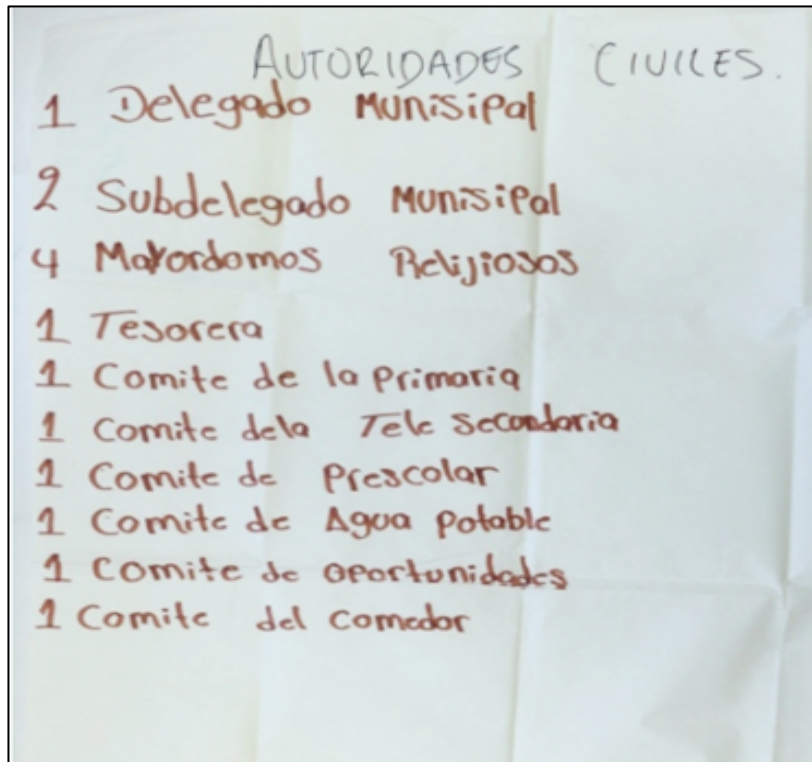 AUTORIDADES CIVILES.
1 Delegado Munisipal
2 Subdelegado Munisipal
4 Mayordomos Relijiosos
1 Tesorera
1 Comite de la primaria
1 Comite dela Tele Secondaria
1 Comite de Prescolar
1 Comite de Agua potable
1 Comite de oportunidades
1 Comite del comedor